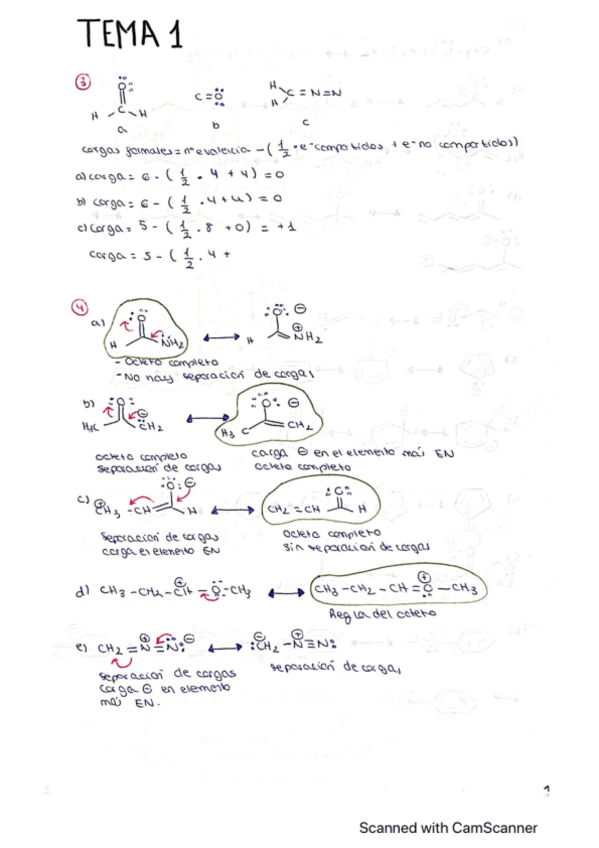 TEMA 1
3
H C H
C=O
H H C=N=N
a b c
cargas formales = nº e⁻ valencia - (1/2 · e⁻ compartidos + e⁻ no compartidos)
a) carga = 6 - (1/2 · 4 + 4) = 0
b) carga = 6 - (1/2 · 4 + 4) = 0
c) carga = 5 - (1/2 · 8 + 0) = +1
carga = 5 - (1/2 · 4 +
4
a) O H NH2 ↔ O ⊖ H ⊕ NH2
- Octeto completo
- No hay separación de cargas
b) O H3C ⊖ CH2 ↔ O ⊖ H3C CH2
octeto completo
separación de cargas
carga ⊖ en el elemento más EN
octeto completo
c) ⊕ CH3 -CH O ⊖ H ↔ CH2=CH O H
Separación de cargas
carga en elemento EN
octeto completo
sin separación de cargas
d) CH3-CH2-CH⊕-O-CH3 ↔ CH3-CH2-CH=O⊕-CH3
Regla del octeto
e) CH2=N⊕=N⊖ ↔ ⊖CH2-N⊕≡N:
separación de cargas
carga ⊖ en elemento
más EN.
separación de cargas
1
Scanned with CamScanner